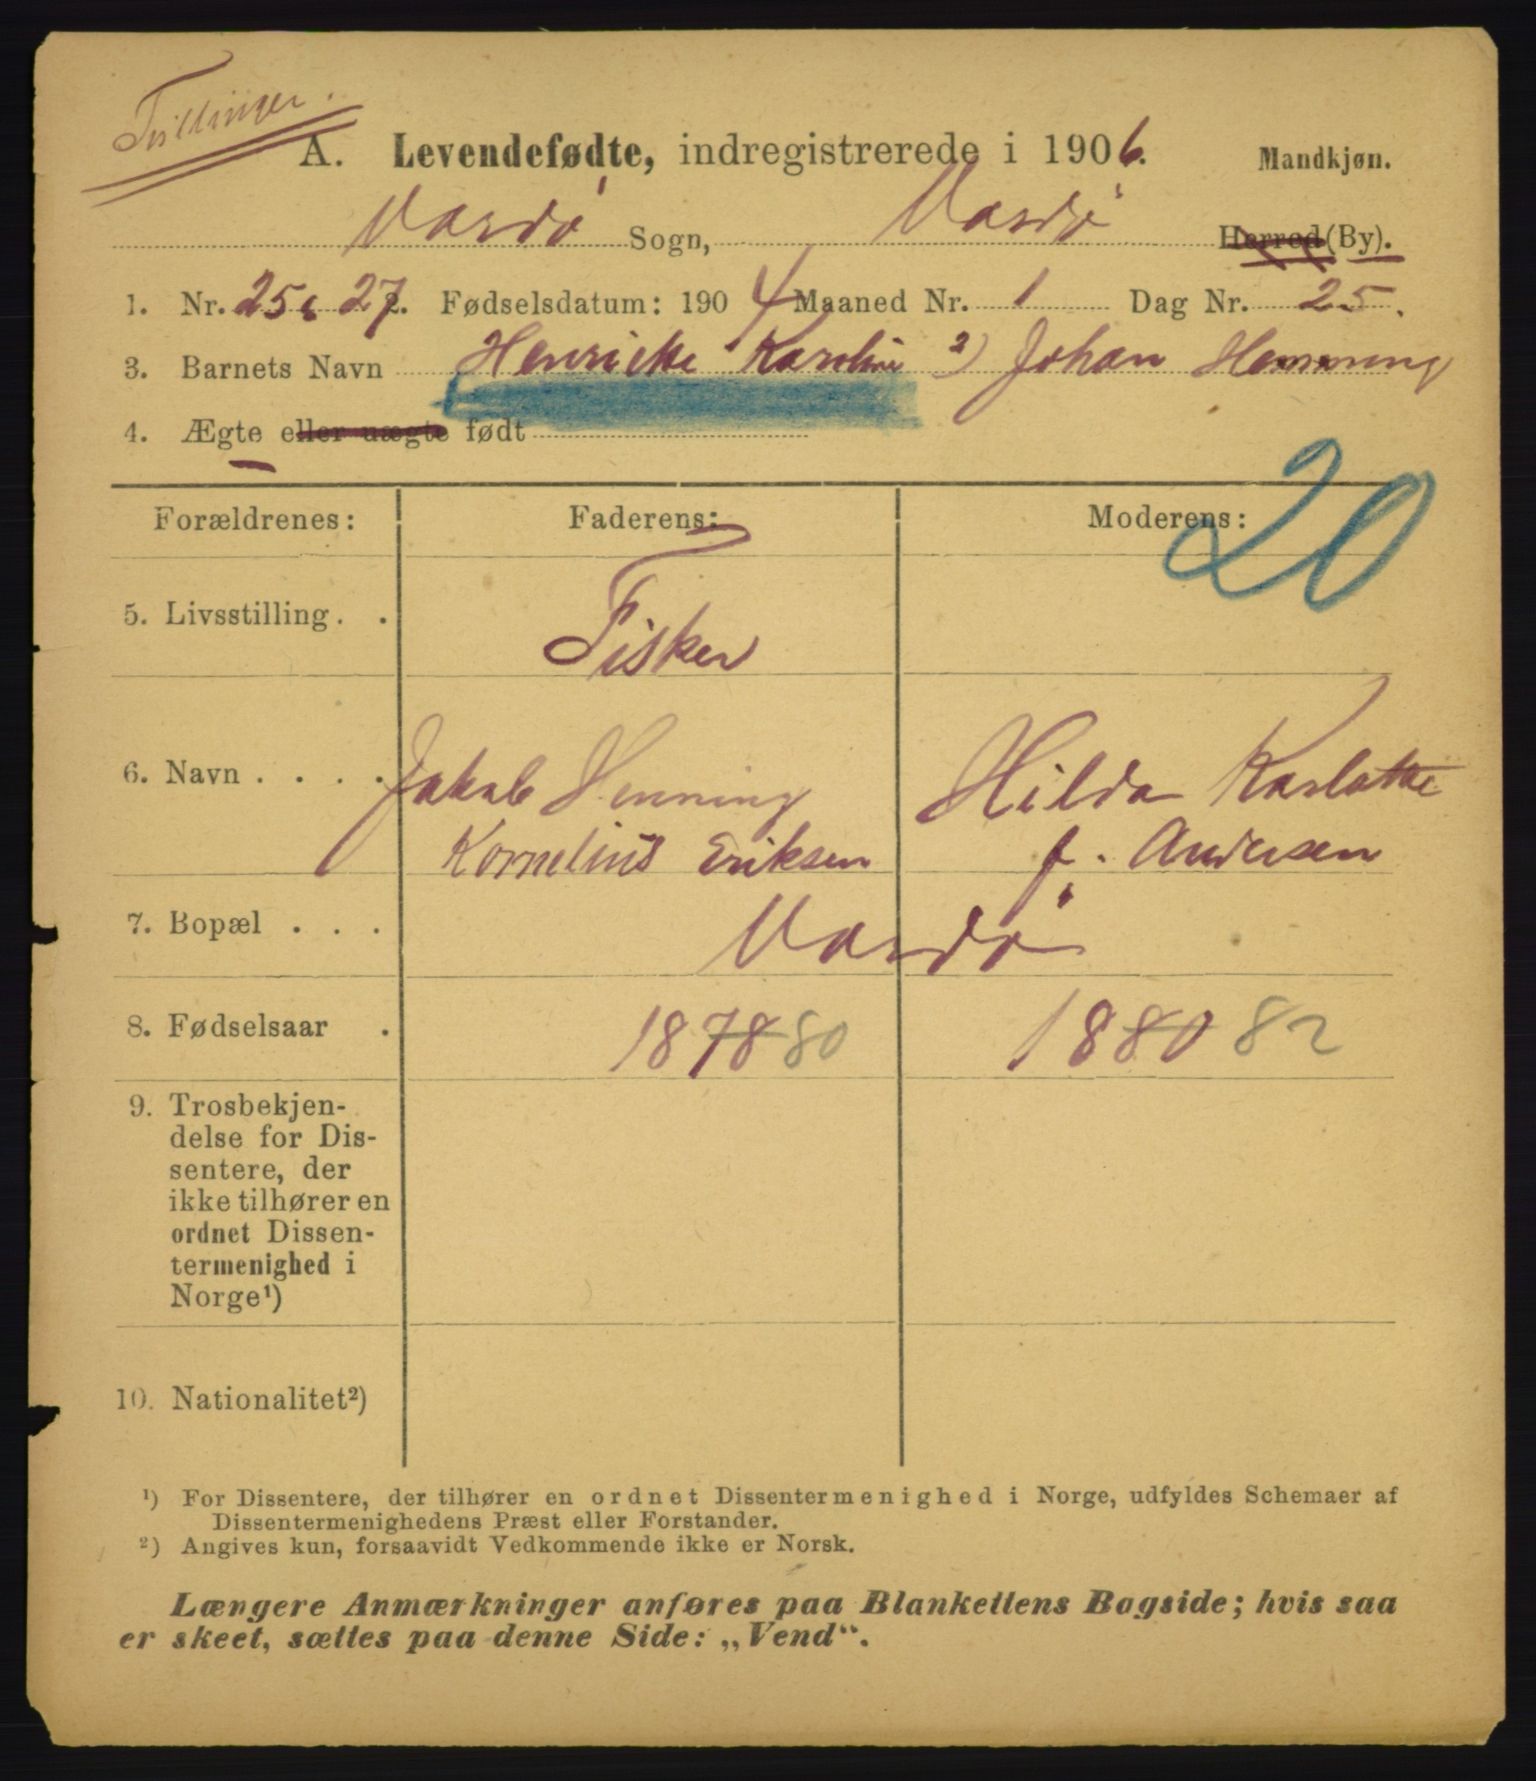 Tvillinger.
A. Levendefødte, indregistrerede i 1906. Mandkjøn.
Vardø Sogn, Vardø Herred (By).
1. Nr. 25 & 27 2. Fødselsdatum: 1904 Maaned Nr. 1 Dag Nr. 25.
3. Barnets Navn Henriette Karoline 2) Johan Henning
4. Ægte eller uægte født
20
Forældrenes: Faderens: Moderens:
5. Livsstilling . . Fisker
6. Navn . . . . Jakob Henning Hilda Karlotte
Kornelius Eriksen f. Andersen
7. Bopæl . . . Vardø
8. Fødselsaar . 1878 80 1880 82
9. Trosbekjen-
delse for Dis-
sentere, der
ikke tilhører en
ordnet Dissen-
termenighed i
Norge¹)
10. Nationalitet²)
¹) For Dissentere, der tilhører en ordnet Dissentermenighed i Norge, udfyldes Schemaer af
Dissentermenighedens Præst eller Forstander.
²) Angives kun, forsaavidt Vedkommende ikke er Norsk.
Længere Anmærkninger anføres paa Blankettens Bagside; hvis saa
er skeet, sættes paa denne Side: „Vend“.